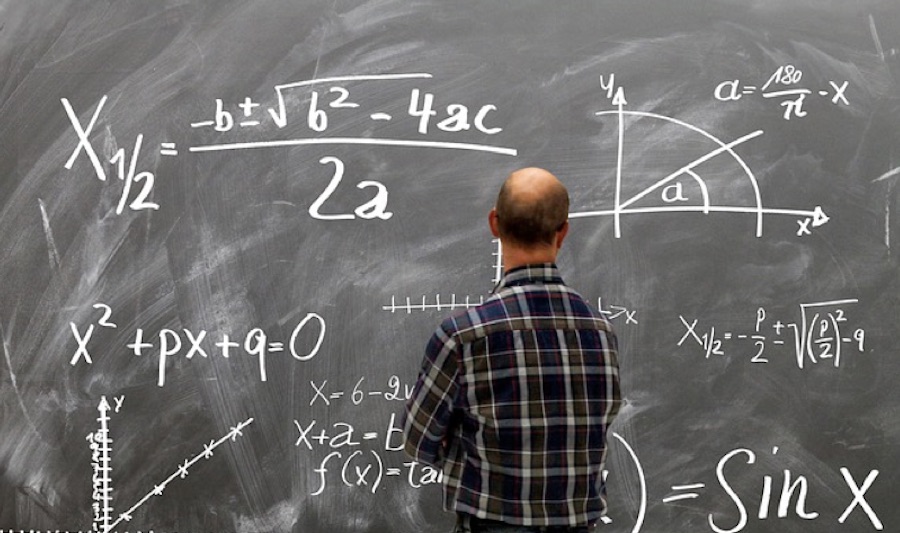 X1/2 = -b ± √b² - 4ac
2a
y
a = 180/π - X
a
x
x² + px + q = 0
x
X1/2 = - p/2 ± √(p/2)² - q
y
X = 6 - 2
x + a = b
f(x) =
) = Sin x